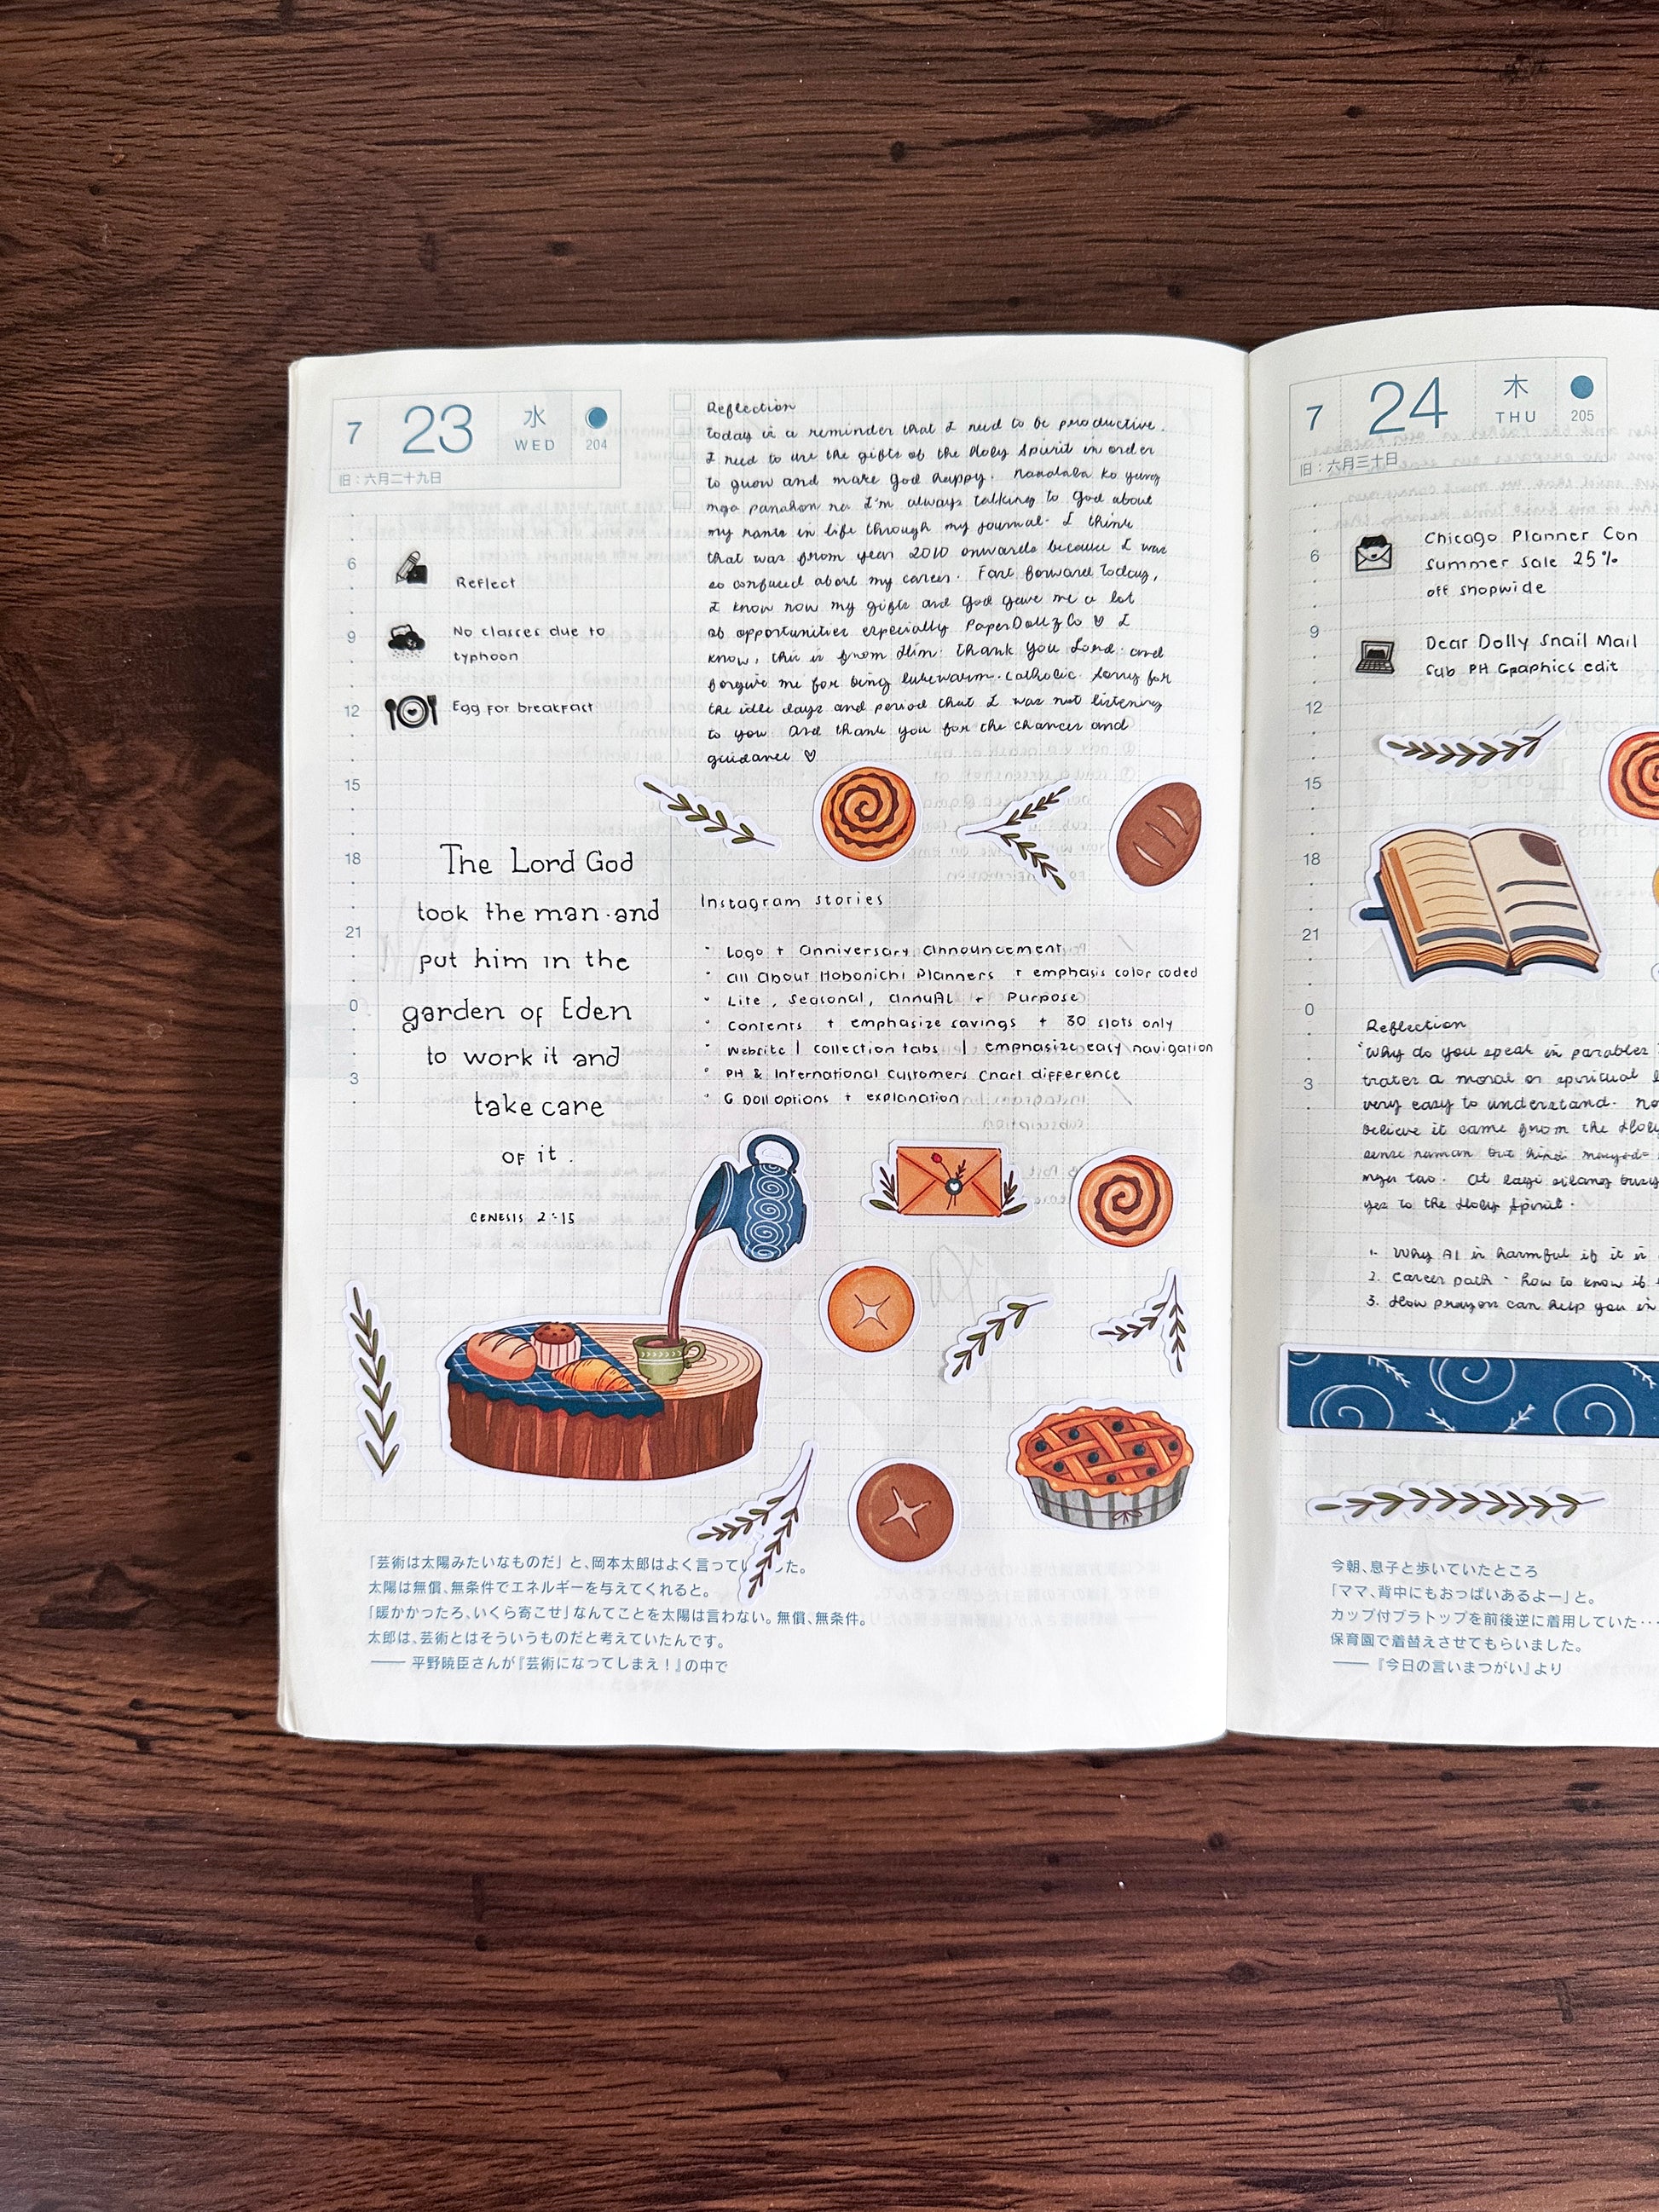 7 23 水 WED 204
旧：六月二十九日
6
9
12
15
18
21
0
3
Reflect
No classes due to
typhoon
Egg for breakfast
The Lord God
took the man and
put him in the
garden of Eden
to work it and
take care
of it.
GENESIS 2:15
Reflection
Today is a reminder that I need to be productive.
I need to use the gifts of the Holy Spirit in order
to grow and make God happy. Naaalala ko yung
mga panahon na I'm always talking to God about
my rants in life through my journal. I think
that was from year 2010 onwards because I was
so confused about my career. Fast forward today,
I know now my gifts and God gave me a lot
of opportunities especially PaperDollzCo ♡ I
know, this is from Him. Thank you Lord. and
forgive me for being lukewarm. Catholic. Sorry for
the idle days and period that I was not listening
to you. And thank you for the chances and
guidance ♡
Instagram stories
• Logo + Anniversary announcement
• All about Hobonichi Planners + emphasis color coded
• Lite, Seasonal, AnnuAL + Purpose
• Contents + emphasize savings + 30 slots only
• Website | collection tabs | emphasize easy navigation
• PH & International Customers Chart difference
• G Doll options + explanation
「芸術は太陽みたいなものだ」と、岡本太郎はよく言って した。
太陽は無償、無条件でエネルギーを与えてくれると。
「暖かかったろ、いくら寄こせ」なんてことを太陽は言わない。無償、無条件。
太郎は、芸術とはそういうものだと考えていたんです。
―― 平野暁臣さんが『芸術になってしまえ！』の中で
7 24 木 THU 205
旧：六月三十日
6
9
12
15
18
21
0
3
Chicago Planner Con
Summer Sale 25%
off shopwide
Dear Dolly Snail Mail
Sub PH Graphics edit
Reflection
"Why do you speak in parables
a moral or spiritual
very easy to understand.
believe it came from the Holy
sense naman but hindi
At lagi silang busy
yes to the Holy Spirit.
1. Why AI is harmful if it is
2. Career path - how to know if
3. How prayer can help you in
今朝、息子と歩いていたところ
「ママ、背中にもおっぱいあるよー」と。
カップ付ブラトップを前後逆に着用していた・・・
保育園で着替えさせてもらいました。
――『今日の言いまつがい』より